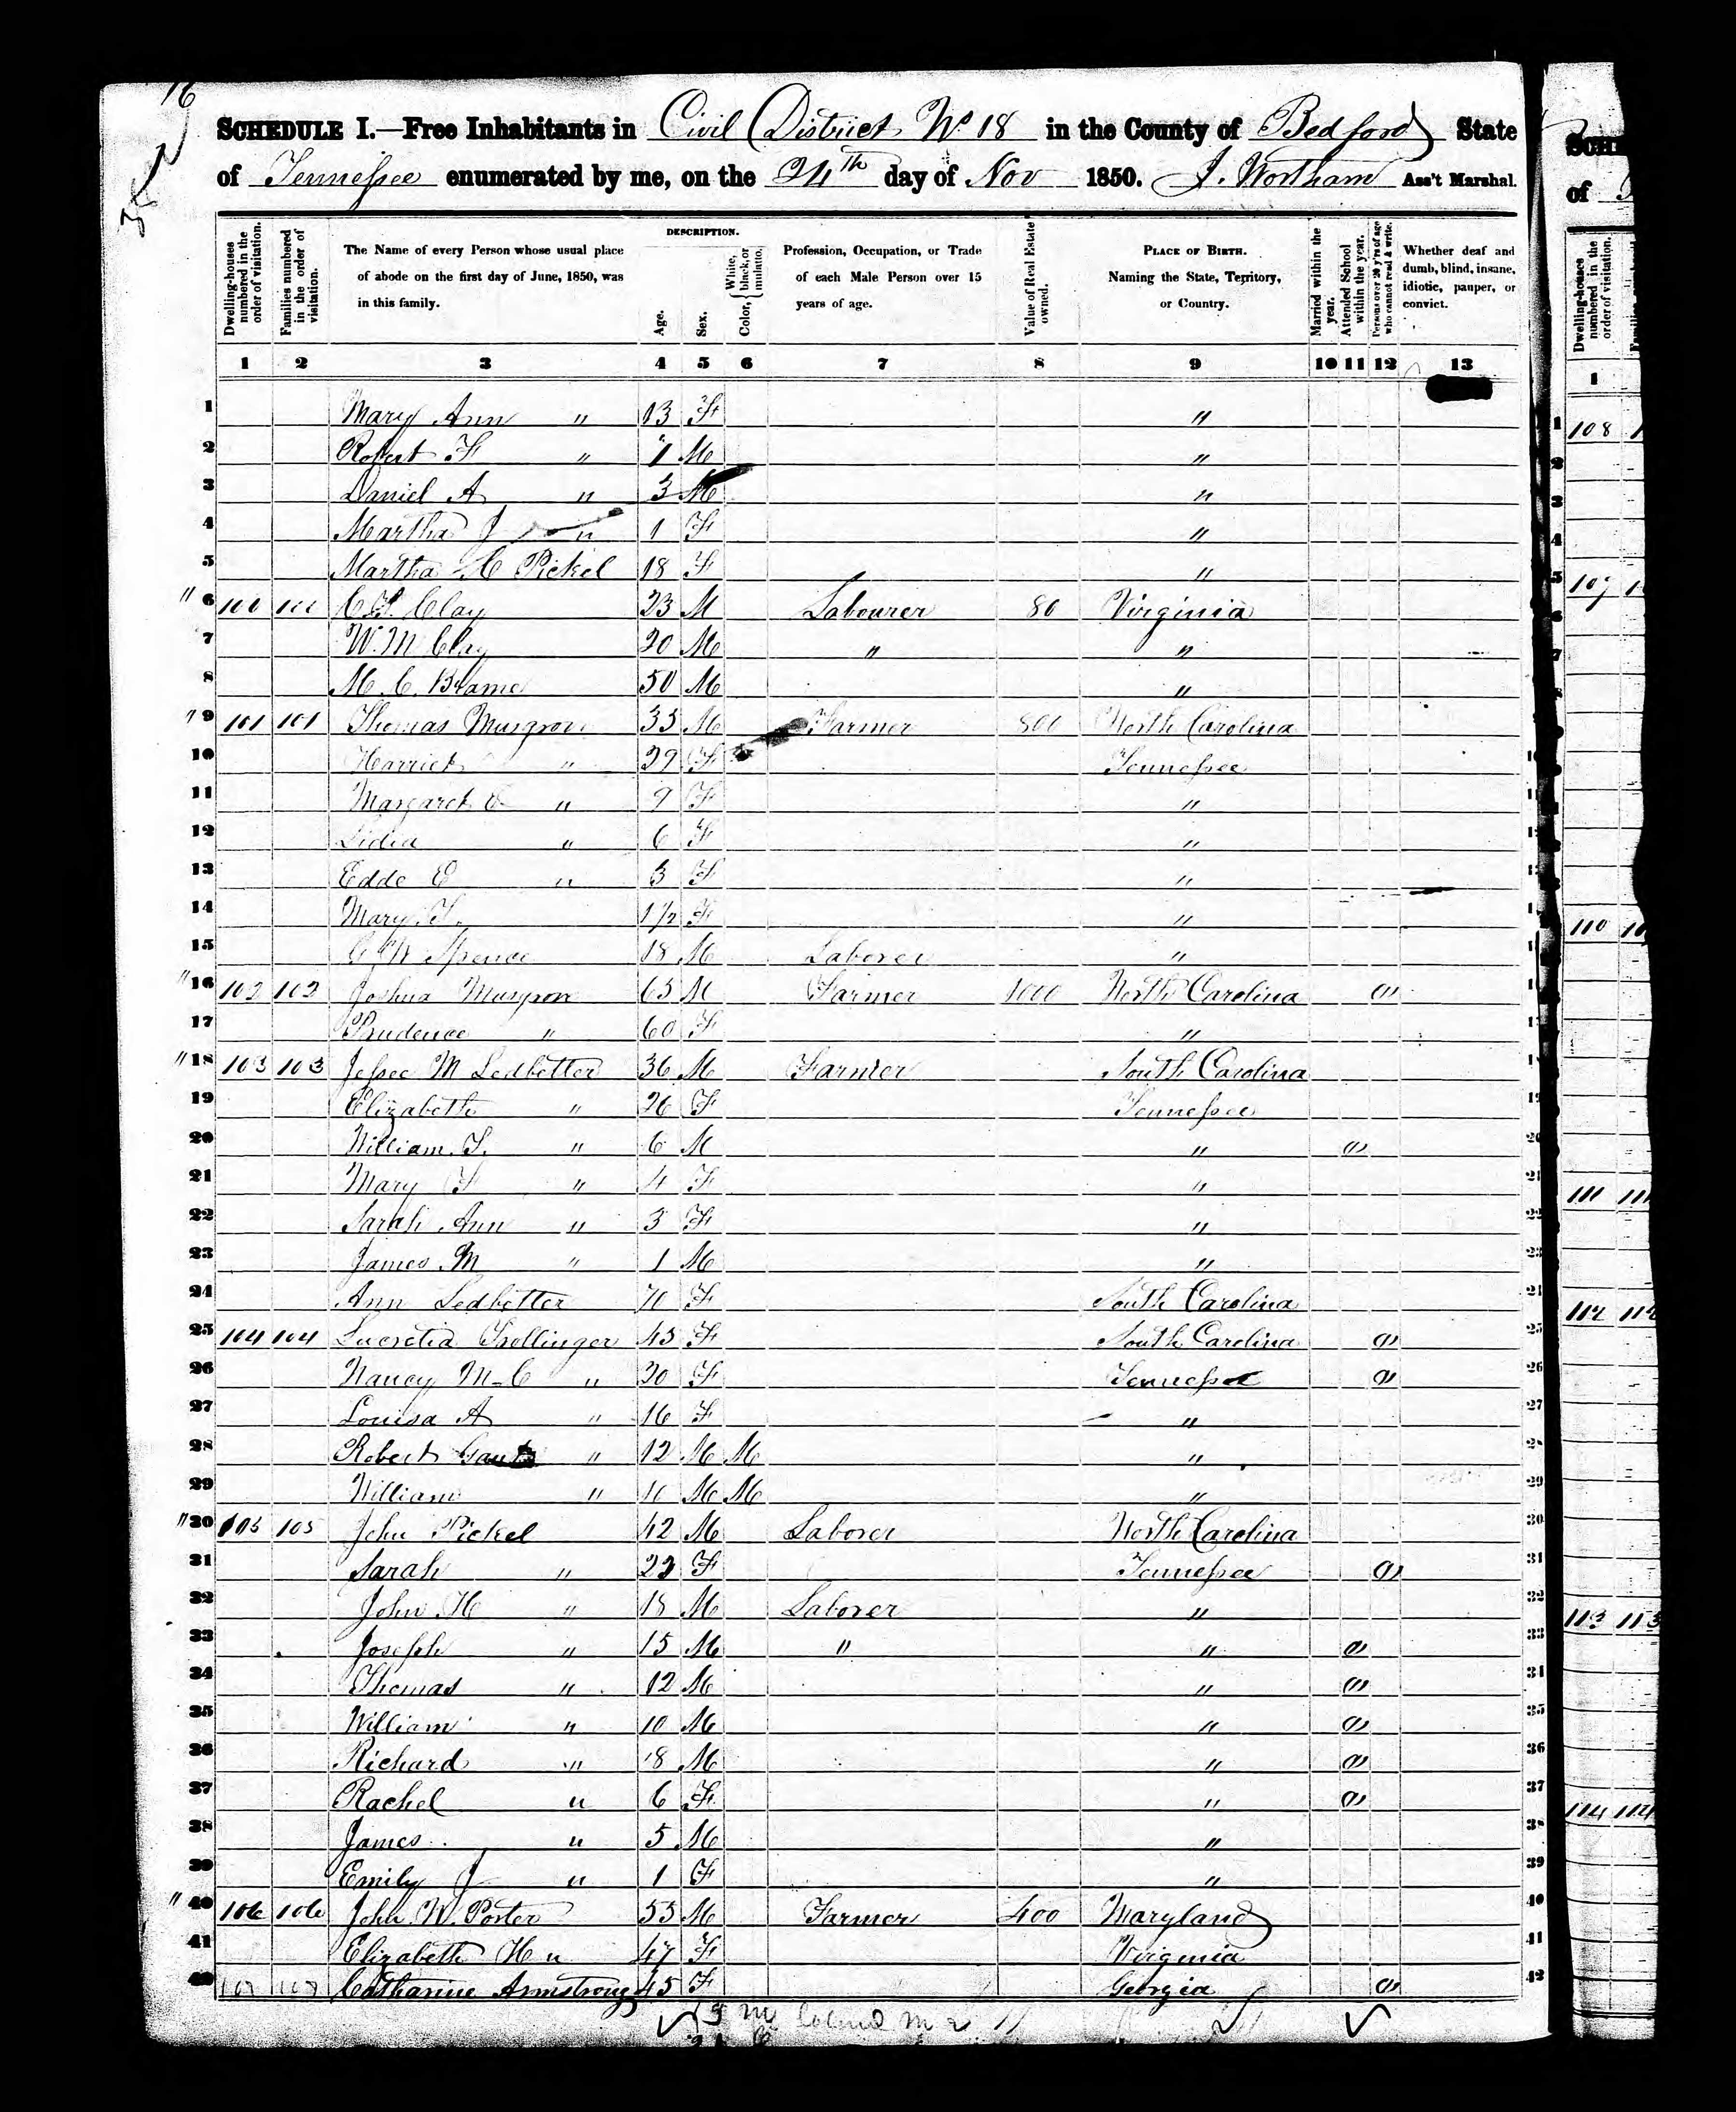 16
SCHEDULE I.—Free Inhabitants in Civil District No 18 in the County of Bedford State
of Tennessee enumerated by me, on the 24th day of Nov 1850. J. Wortham Ass't Marshal.
Dwelling-houses numbered in the order of visitation.
Families numbered in the order of visitation.
The Name of every Person whose usual place of abode on the first day of June, 1850, was in this family.
DESCRIPTION.
Age.
Sex.
Color, { White, black, or mulatto.
Profession, Occupation, or Trade of each Male Person over 15 years of age.
Value of Real Estate owned.
PLACE OF BIRTH. Naming the State, Territory, or Country.
Married within the year.
Attended School within the year.
Persons over 20 y'rs of age who cannot read & write.
Whether deaf and dumb, blind, insane, idiotic, pauper, or convict.
1 2 3 4 5 6 7 8 9 10 11 12 13
1 Mary Ann " 13 F "
2 Robert F " M "
3 Daniel A " 3 M "
4 Martha J " 1 F "
5 Martha C Pickel 18 F "
" 6 100 100 Clay 23 M Labourer 80 Virginia
7 W. M Clay 20 M " "
8 M. C. 50 M "
" 9 101 101 Thomas Musgrove 33 M Farmer 800 North Carolina
10 Harriet " 29 F Tennessee
11 Margaret E " 9 F "
12 Lidia " 6 F "
13 Edde E " 3 F "
14 Mary 1 1/2 F "
15 G W Spence 18 M Laborer "
" 16 102 102 Joshua Musgrove 65 M Farmer 1000 North Carolina "
17 Prudence " 60 F "
" 18 103 103 Jessee M Ledbetter 36 M Farmer South Carolina
19 Elizabeth " 26 F Tennessee
20 William " 6 M " "
21 Mary F " 4 F "
22 Sarah Ann " 3 F "
23 James M " 1 M "
24 Ann Ledbetter 70 F South Carolina
25 104 104 Lucretia Trollinger 45 F South Carolina "
26 Nancy M-C " 20 F Tennessee "
27 Louisa A " 16 F "
28 Robert " 12 M M "
29 William " M M "
" 30 105 105 John Pickel 42 M Laborer North Carolina
31 Sarah " F Tennessee "
32 John H " 18 M Laborer "
33 Joseph " 15 M " " "
34 Thomas " 12 M " "
35 William " 10 M " "
36 Richard " 8 M " "
37 Rachel " 6 F " "
38 James " 5 M "
39 Emily J " 1 F "
" 40 106 106 John W. Porter 53 M Farmer 400 Maryland
41 Elizabeth H " 47 F Virginia
42 107 107 Catharine Armstrong 45 F Georgia "
SCHE
of
Dwelling-houses numbered in the order of visitation.
1
108
109
110
111 111
112 112
113 113
114 114